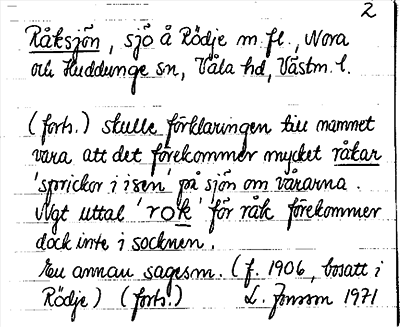 2
Råksjön, sjö å Rödje m.fl., Nora
och Huddunge sn, Våla hd, Västm. l.
(forts.) skulle förklaringen till namnet
vara att det förekommer mycket råkar
'sprickor i isen' på sjön om vårarna.
Ngt uttal 'rok' för råk förekommer
dock inte i socknen.
En annan sagesm. (f. 1906, bosatt i
Rödje) (forts.) L. Jonsson 1971